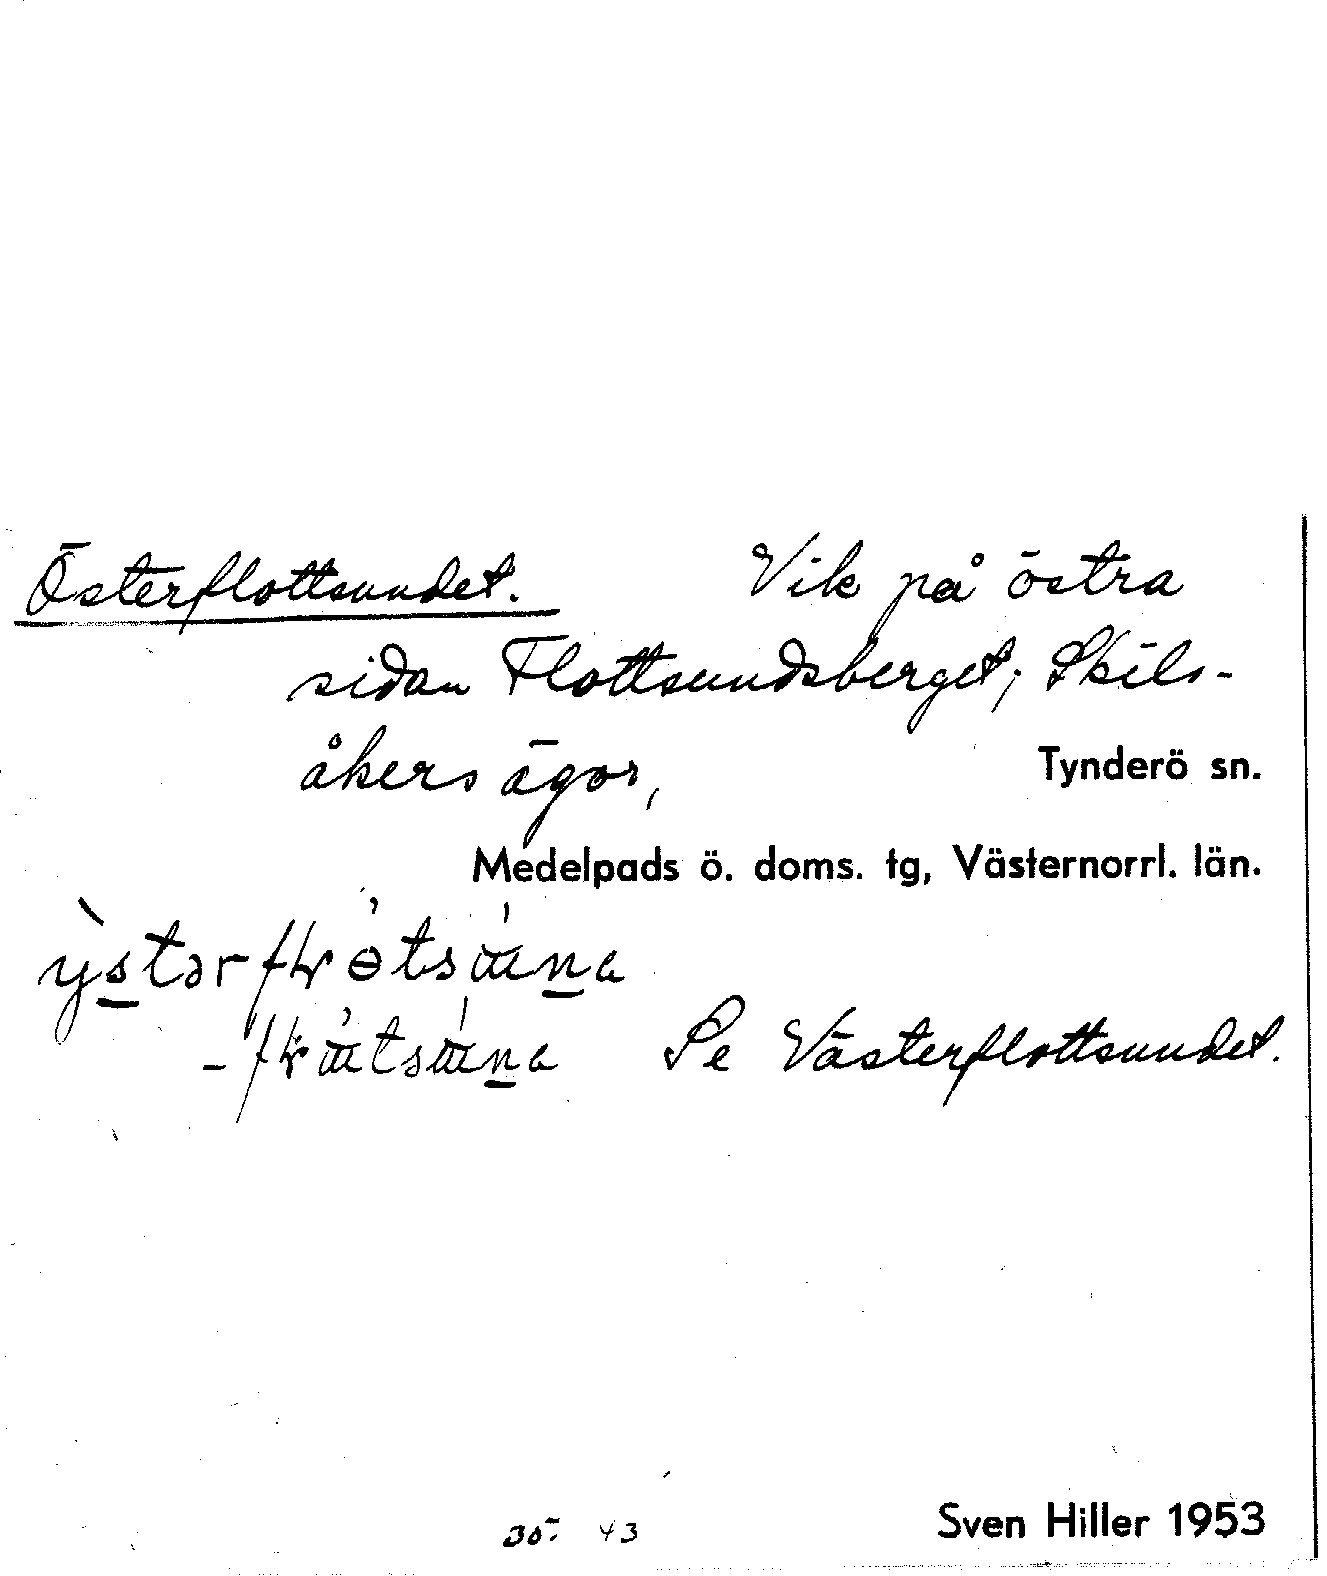 Österflottsundet. Vik på östra
sidan Flottsundsberget; Skils-
åkers ägor, Tynderö sn.
Medelpads ö. doms. tg, Västernorrl. län.
Se Västerflottsundet.
43 Sven Hiller 1953